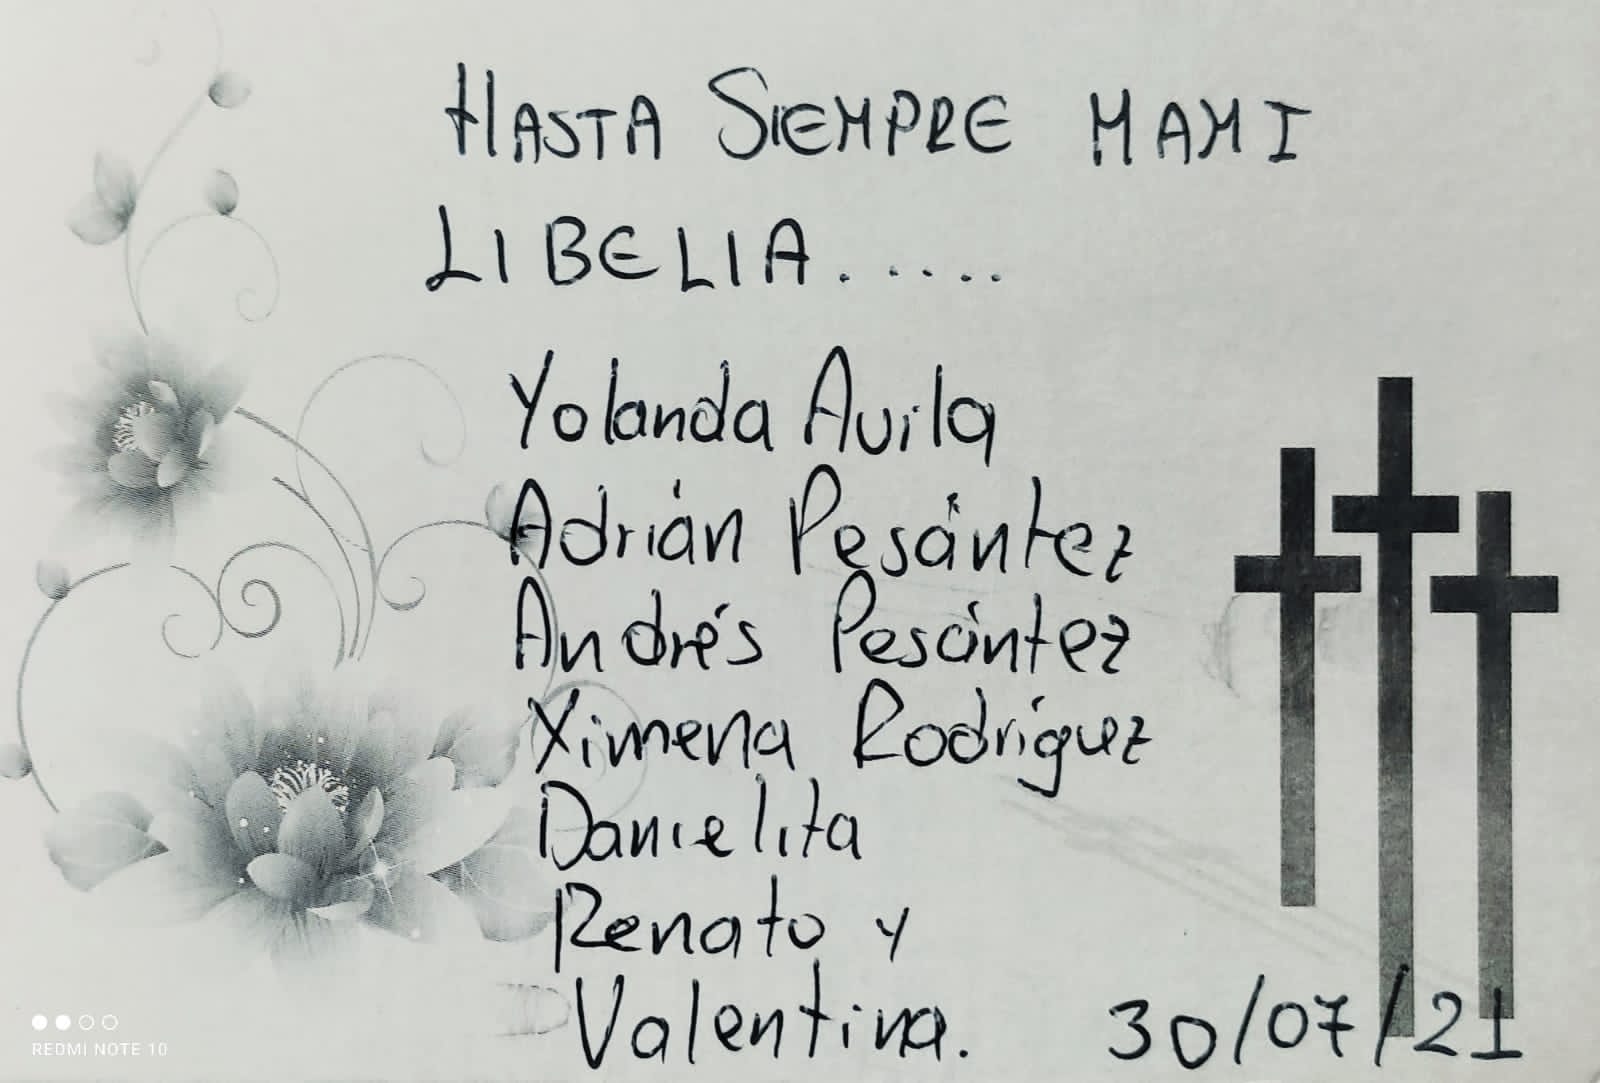 HASTA SIEMPRE MAMI
LIBELIA.....
Yolanda Avila
Adrián Pesántez
Andrés Pesántez
Ximena Rodríguez
Danielita
Renato y
Valentina.
30/07/21
REDMI NOTE 10